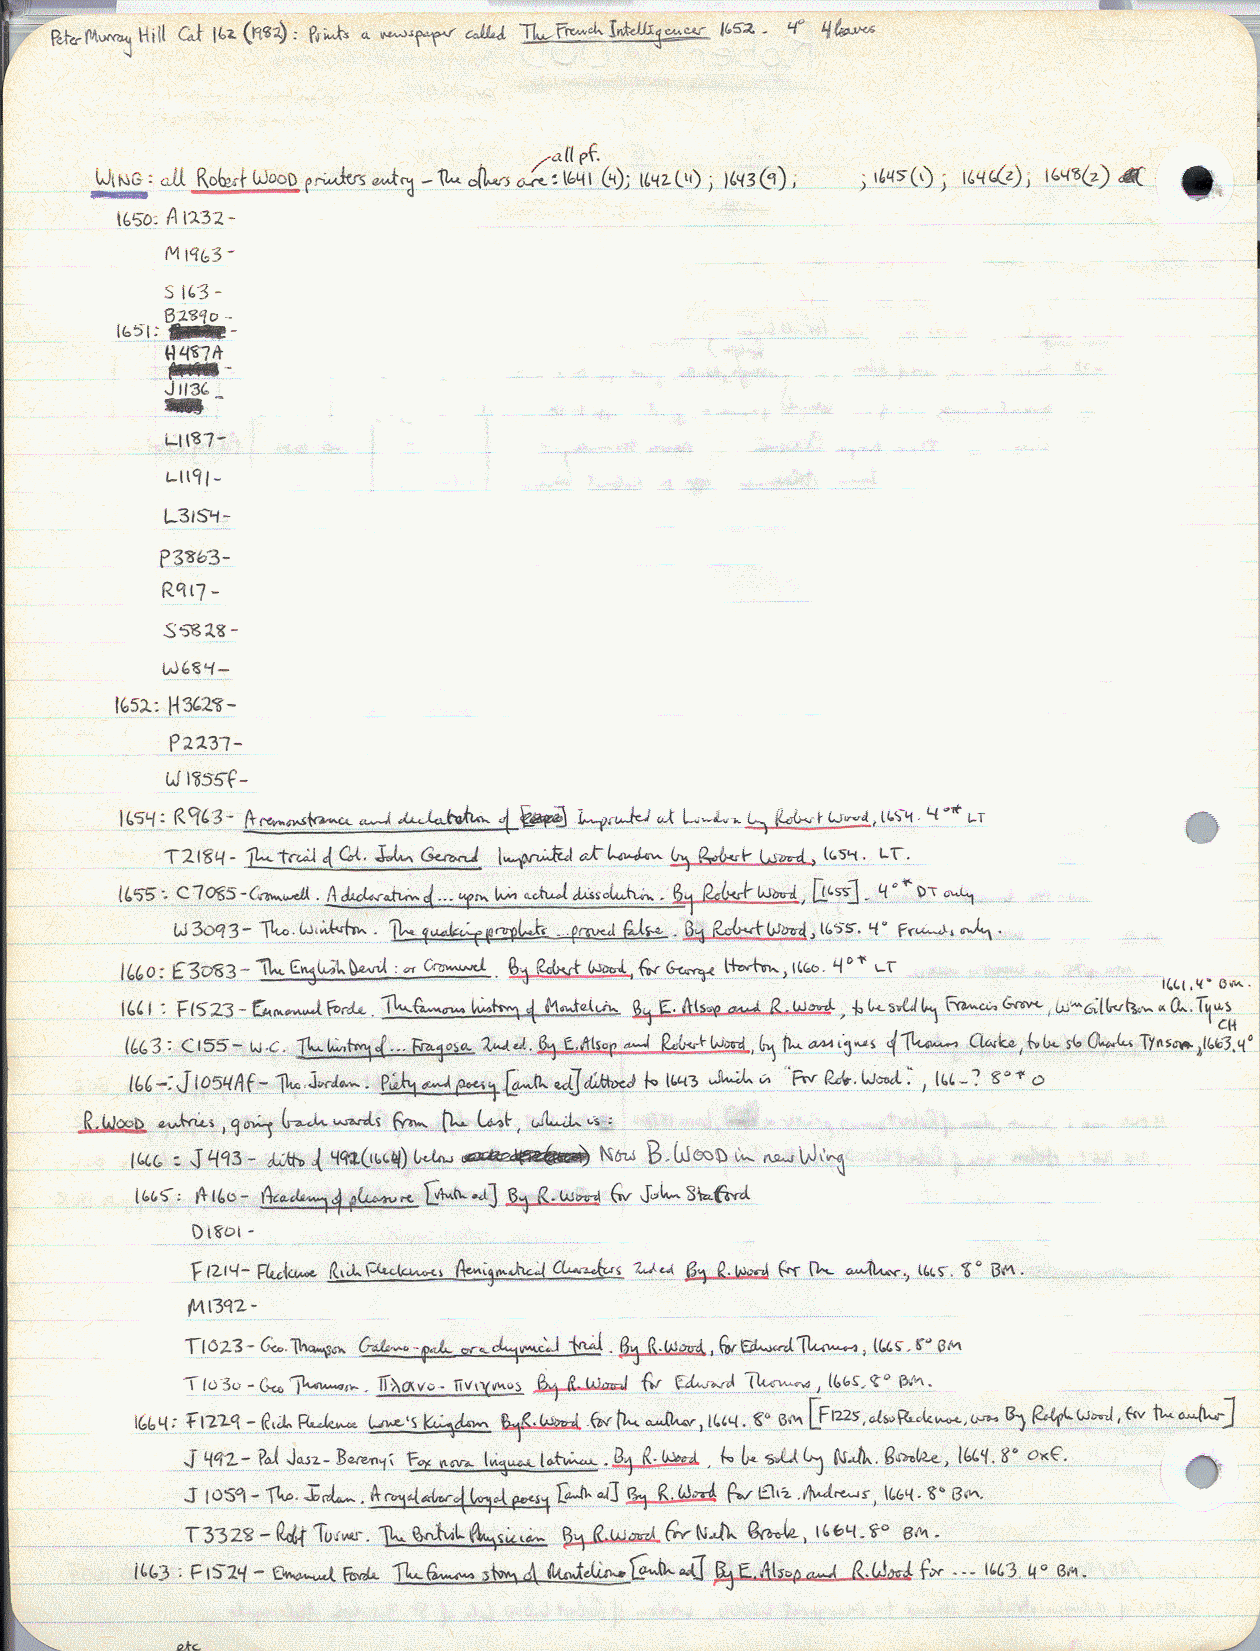 Peter Murray Hill Cat 162 (1982): Prints a newspaper called The French Intelligencer 1652. 4° 4 leaves
all pf.
WING: all Robert WOOD printers entry - the others are: 1641 (4); 1642 (11); 1643 (9); ; 1645 (1); 1646 (2); 1648 (2)
1650: A1232-
M1963-
S163-
B2890-
1651:
H487A
J1136-
L1187-
L1191-
L3154-
P3863-
R917-
S5828-
W684-
1652: H3628-
P2237-
W1855f-
1654: R963- A remonstrance and declaration of [ ] Imprinted at London by Robert Wood, 1654. 4°* LT
T2184- The trial of Col. John Gerard Imprinted at London by Robert Wood, 1654. LT.
1655: C7085- Cromwell. A declaration of ... upon his actual dissolution. By Robert Wood, [1655]. 4°* DT only
W3093- Tho. Winterton. The quaking prophets ... proved false. By Robert Wood, 1655. 4° Friends only.
1660: E3083- The English Devil: or Cromwel. By Robert Wood, for George Horton, 1660. 4°* LT
1661: F1523- Emmanuel Forde. The famous history of Montelion By E. Alsop and R. Wood, to be sold by Francis Grove, Wm Gilbertson & Ch. Tyus 1661. 4° BM.
1663: C155- W.C. The history of ... Fragosa 2nd ed. By E. Alsop and Robert Wood, by the assignes of Thomas Clarke, to be sb Charles Tynson, 1663. 4° CH
166-: J1054Af- Tho. Jordan. Piety and poesy [anth ed] dittoed to 1643 which is "For Rob. Wood.", 166-? 8°* O
R. WOOD entries, going backwards from the last, which is:
1666: J493- ditto of 492 (1664) below Now B. WOOD in new Wing
1665: A160- Academy of pleasure [Anth ed] By R. Wood for John Stafford
D1801-
F1214- Flecknoe Rich Flecknoes Aenigmatical Characters 2nd ed By R. Wood for the author, 1665. 8° BM.
M1392-
T1023- Geo. Thompson Galeno-pale or a chymical trial. By R. Wood, for Edward Thomas, 1665. 8° BM
T1030- Geo Thomson. Πλανο-Πνιγμος By R. Wood for Edward Thomas, 1665. 8° BM.
1664: F1229- Rich Flecknoe Love's Kingdom By R. Wood for the author, 1664. 8° BM [F1225, also Flecknoe, was By Ralph Wood, for the author]
J492- Pal Jasz-Berenyi Fax nova linguae latinae. By R. Wood, to be sold by Nath. Brooke, 1664. 8° Oxf.
J1059- Tho. Jordan. A royal arbor of loyal poesy [anth ed] By R. Wood for Eliz. Andrews, 1664. 8° BM.
T3328- Robt Turner. The British Physician By R. Wood for Nath Brook, 1664. 8° BM.
1663: F1524- Emanuel Forde The famous story of Montelion [anth ed] By E. Alsop and R. Wood for ... 1663. 4° BM.
etc